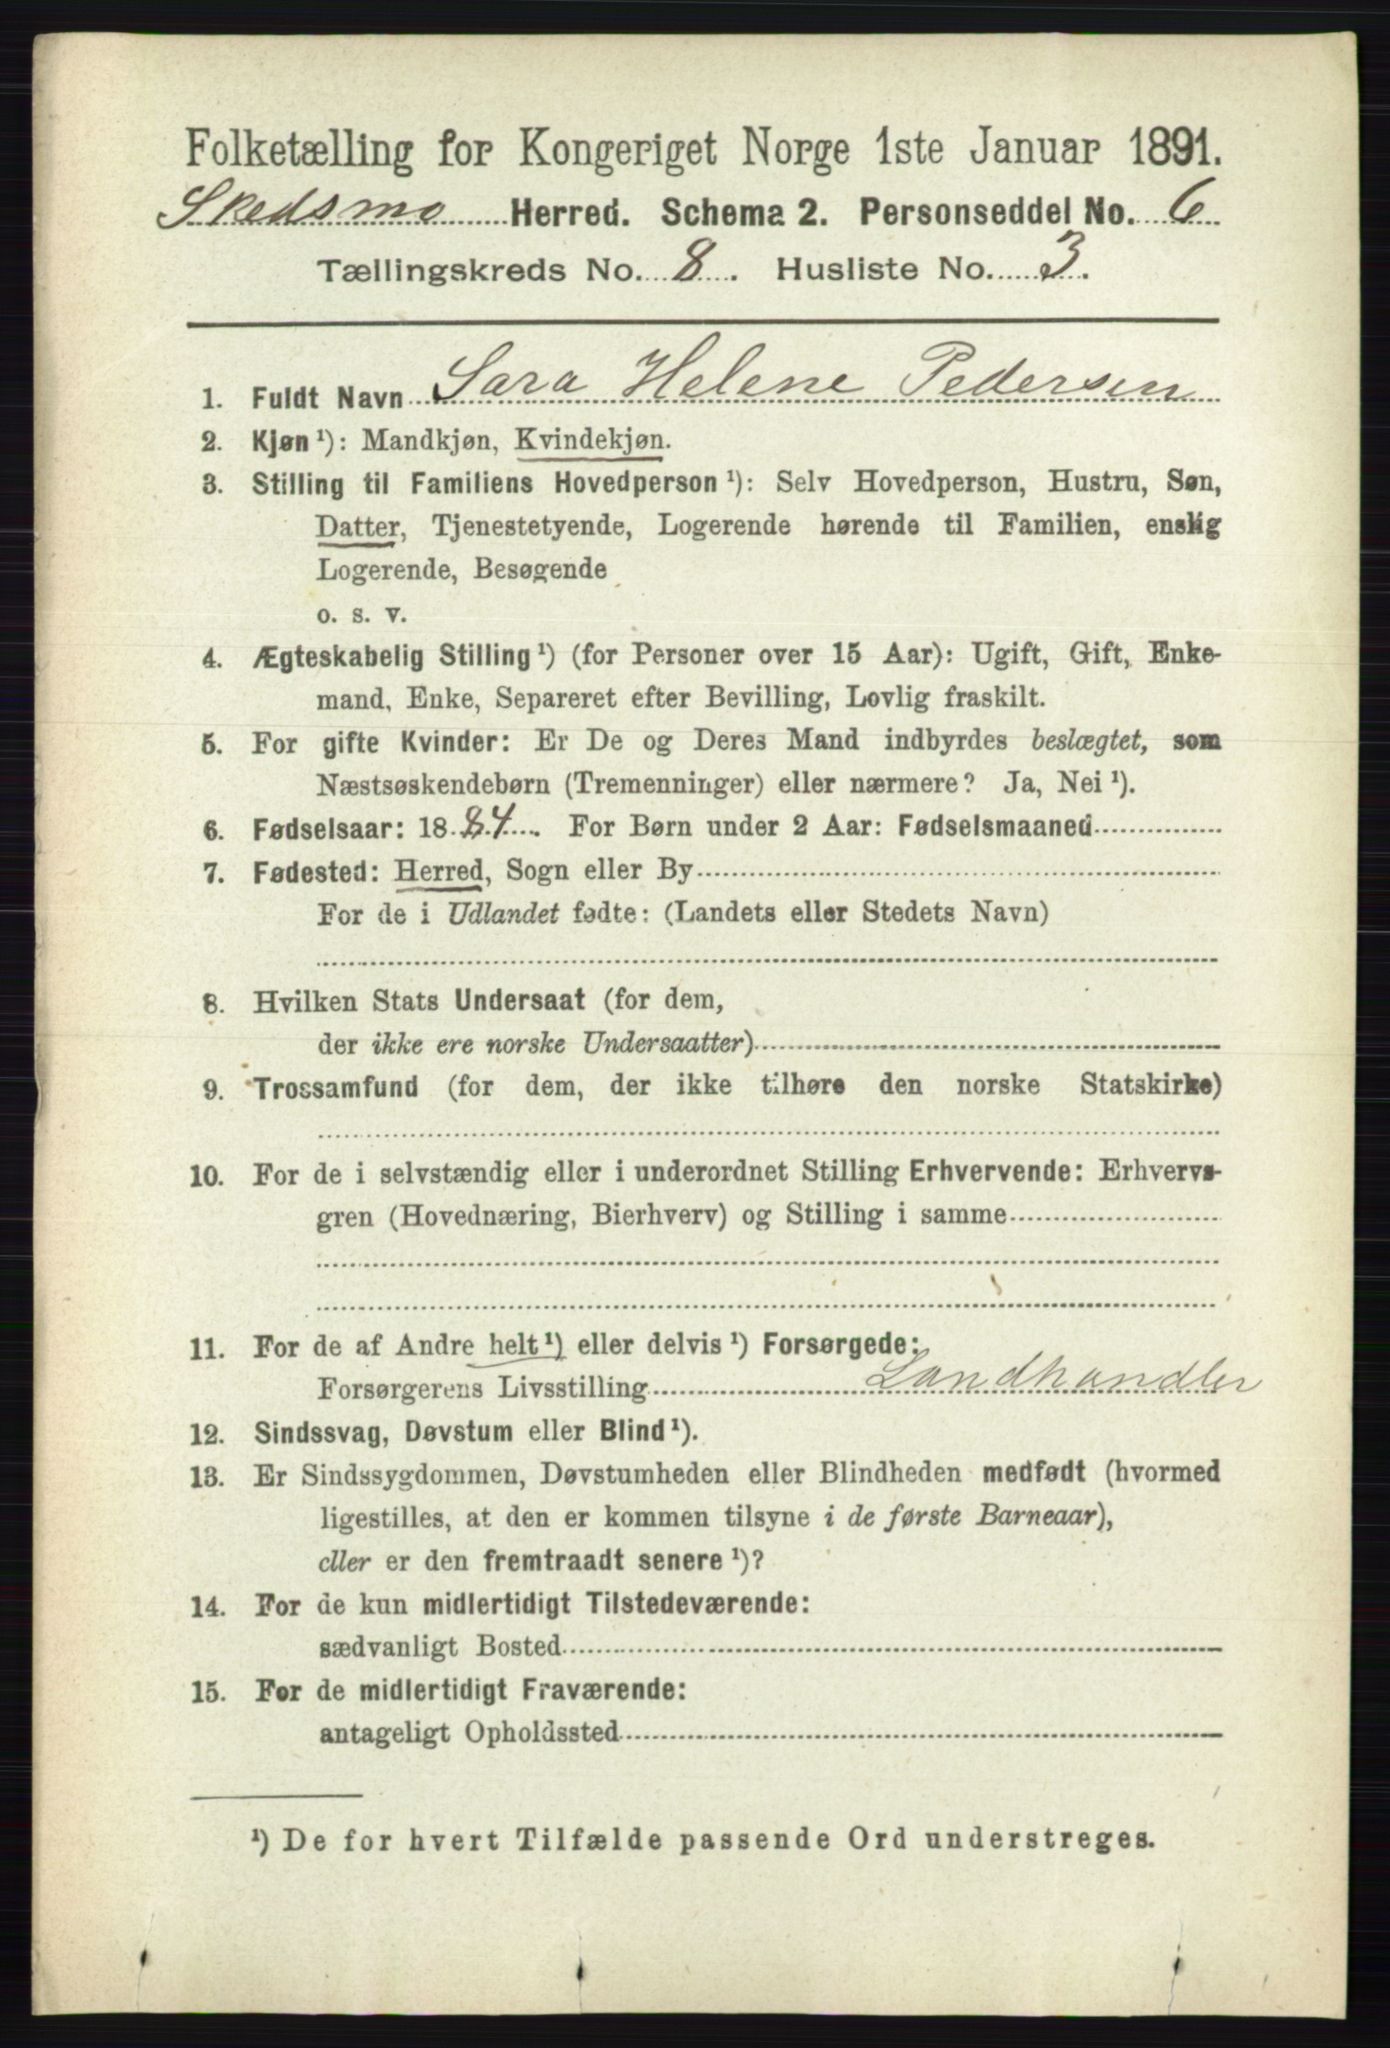 Folketælling for Kongeriget Norge 1ste Januar 1891.
Skedsmo Herred. Schema 2. Personseddel No. 6
Tællingskreds No. 8. Husliste No. 3.
1. Fuldt Navn Sara Helene Pedersen
2. Kjøn ¹): Mandkjøn, Kvindekjøn.
3. Stilling til Familiens Hovedperson ¹): Selv Hovedperson, Hustru, Søn,
Datter, Tjenestetyende, Logerende hørende til Familien, enslig
Logerende, Besøgende
o. s. v.
4. Ægteskabelig Stilling ¹) (for Personer over 15 Aar): Ugift, Gift, Enke-
mand, Enke, Separeret efter Bevilling, Lovlig fraskilt.
5. For gifte Kvinder: Er De og Deres Mand indbyrdes beslægtet, som
Næstsøskendebørn (Tremenninger) eller nærmere? Ja, Nei ¹).
6. Fødselsaar: 1884. For Børn under 2 Aar: Fødselsmaaned
7. Fødested: Herred, Sogn eller By
For de i Udlandet fødte: (Landets eller Stedets Navn)
8. Hvilken Stats Undersaat (for dem,
der ikke ere norske Undersaatter)
9. Trossamfund (for dem, der ikke tilhøre den norske Statskirke)
10. For de i selvstændig eller i underordnet Stilling Erhvervende: Erhvervs-
gren (Hovednæring, Bierhverv) og Stilling i samme
11. For de af Andre helt ¹) eller delvis ¹) Forsørgede:
Forsørgerens Livsstilling Landhandler
12. Sindssvag, Døvstum eller Blind ¹).
13. Er Sindssygdommen, Døvstumheden eller Blindheden medfødt (hvormed
ligestilles, at den er kommen tilsyne i de første Barneaar),
eller er den fremtraadt senere ¹)?
14. For de kun midlertidigt Tilstedeværende:
sædvanligt Bosted
15. For de midlertidigt Fraværende:
antageligt Opholdssted
¹) De for hvert Tilfælde passende Ord understreges.